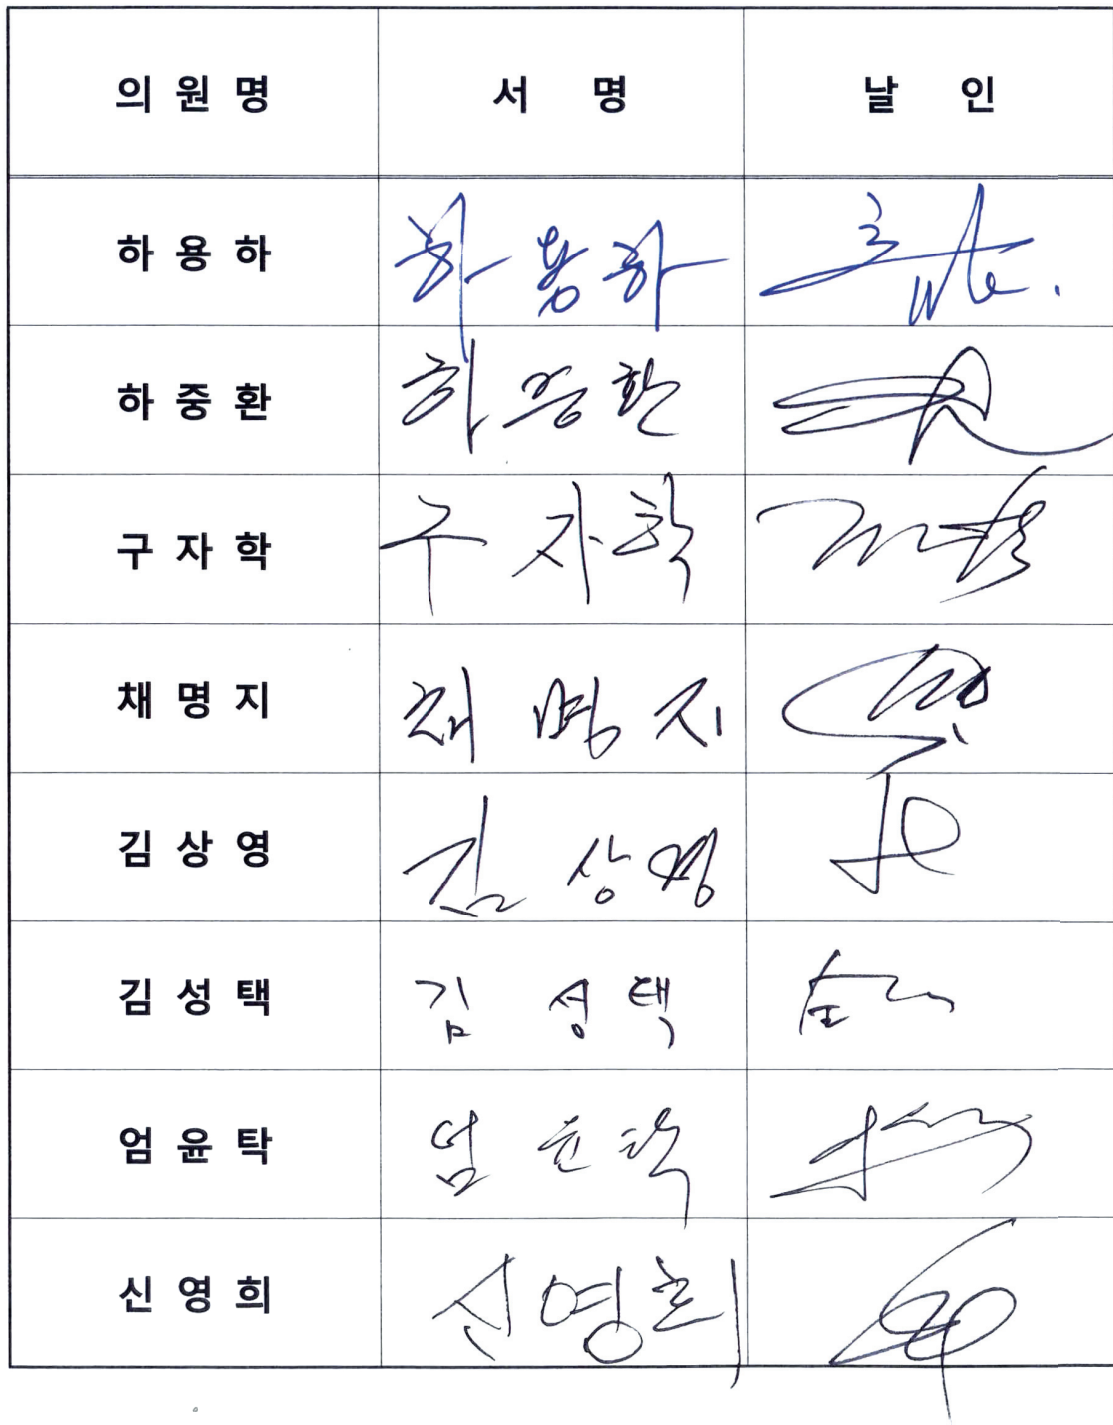 의 원 명 서 명 날 인
하 용 하 하 용 하
하 중 환 하 중 환
구 자 학 구 자 학
채 명 지 채 명 지
김 상 영 김 상 영
김 성 택 김 성 택
엄 윤 탁 엄 윤 탁
신 영 희 신 영 희